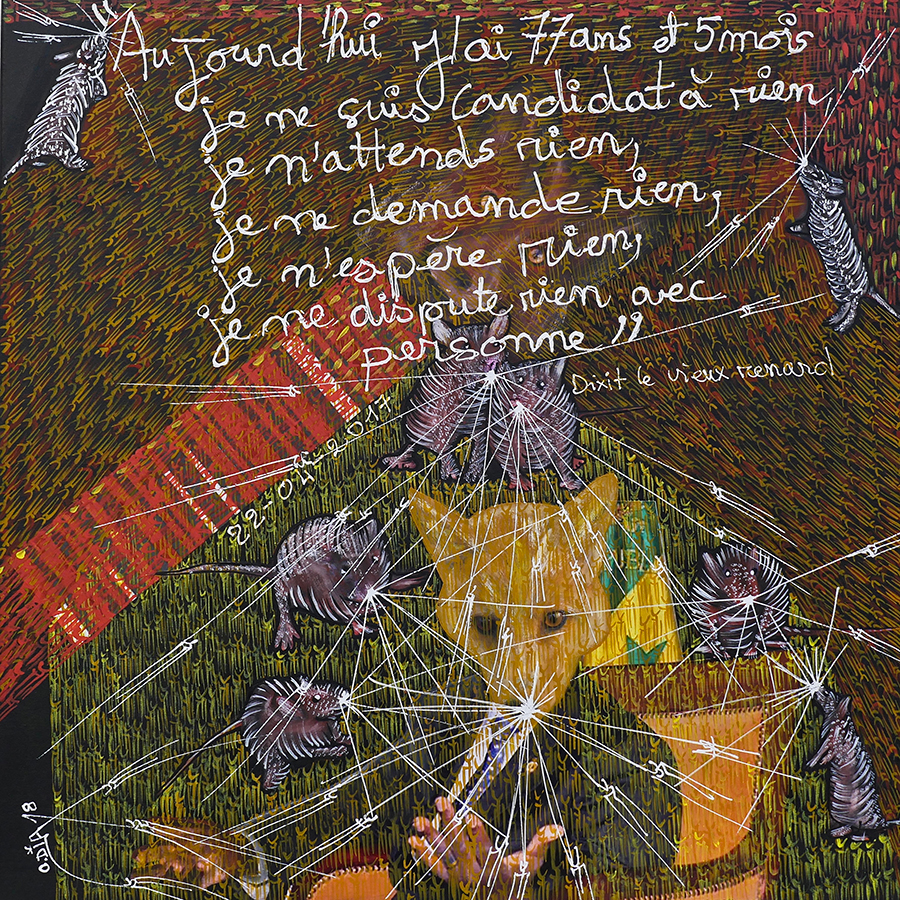 Aujourd'hui j'ai 77ans et 5mois
je ne suis candidat à rien
je n'attends rien,
je ne demande rien,
je n'espère rien,
je ne dispute rien avec
personne"
Dixit le vieux renard
22-04-2017